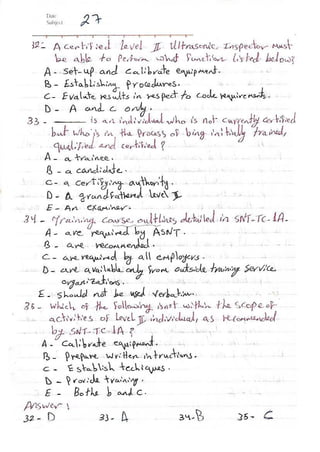 Date:
Subject
27
32- A certified level II Ultrasonic Inspector must
be able to Perform what function listed below?
A - set-up and calibrate equipment.
B - Establishing Procedures.
C - Evalute results in respect to code requirements.
D - A and C only.
33 - is an individual who is not currently certified
but who is in the process of being initially trained,
qualified and certified?
A - a trainee.
B - a candidate.
C - a certifying authority.
D - A grandfathered level I
E - An examiner.
34 - Training course outlines detailed in SNT-TC-1A.
A - are required by ASNT.
B - are recommended.
C - are required by all employers.
D - are available only from outside training service
organizations.
E - should not be used verbatim.
35 - Which of the following isn't within the scope of
activities of Level II individual, as recommended
by SNT-TC-1A?
A - Calibrate equipment.
B - Prepare written intructions.
C - Establish techiques.
D - Provide training.
E - Bothe b and c.
Answer:
32- D 33- A 34-B 35- C